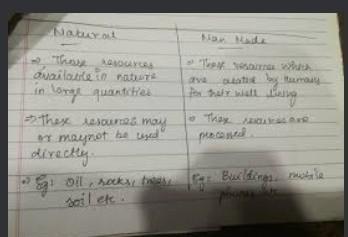 Natural
Man Made
⇒ These resources
available in nature
in large quantities
These resources which
are created by humans
for their well being
⇒ These resources may
or maynot be used
directly.
These resources are
processed.
Eg: Oil, rocks, trees,
soil etc.
Eg: Buildings, mobile
phones etc